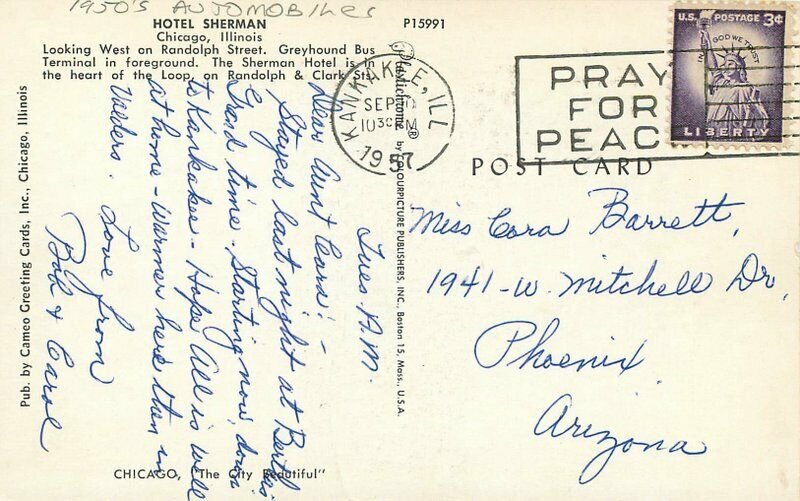 1950's AUTOMOBILES
HOTEL SHERMAN
Chicago, Illinois
Looking West on Randolph Street. Greyhound Bus
Terminal in foreground. The Sherman Hotel is in
the heart of the Loop, on Randolph & Clark Sts.
P15991
KANKAKEE, ILL
SEP
1030 AM
1957
PRAY
FOR
PEACE
U.S. POSTAGE 3¢
IN GOD WE TRUST
LIBERTY
POST CARD
Tues. A.M.
Dear Aunt Cora: -
Stayed last night at Bertha's
Grand time. Starting now, down
to Kankakee - Hope All is well
at home - Warmer here then in
Valders. Love from
Bob & Carol
Miss Cora Barrett,
1941-W. Mitchell Dr,
Phoenix
Arizona
Plastichrome ® by COLOURPICTURE PUBLISHERS, INC., Boston 15, Mass., U.S.A.
Pub. by Cameo Greeting Cards, Inc., Chicago, Illinois
CHICAGO, "The City Beautiful"